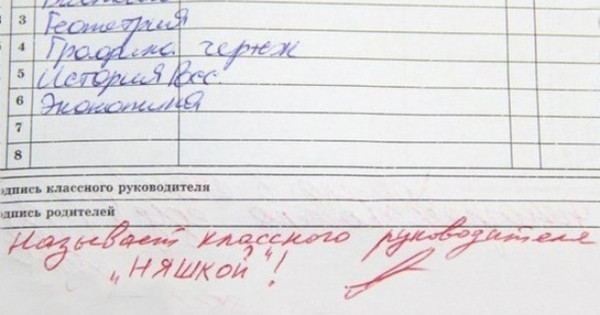 3 Геометрия
4 Графика черчж
5 История Рос.
6 Экономика
7
8
одпись классного руководителя
одпись родителей
Называет классного руководителя
„НЯШКОЙ"!